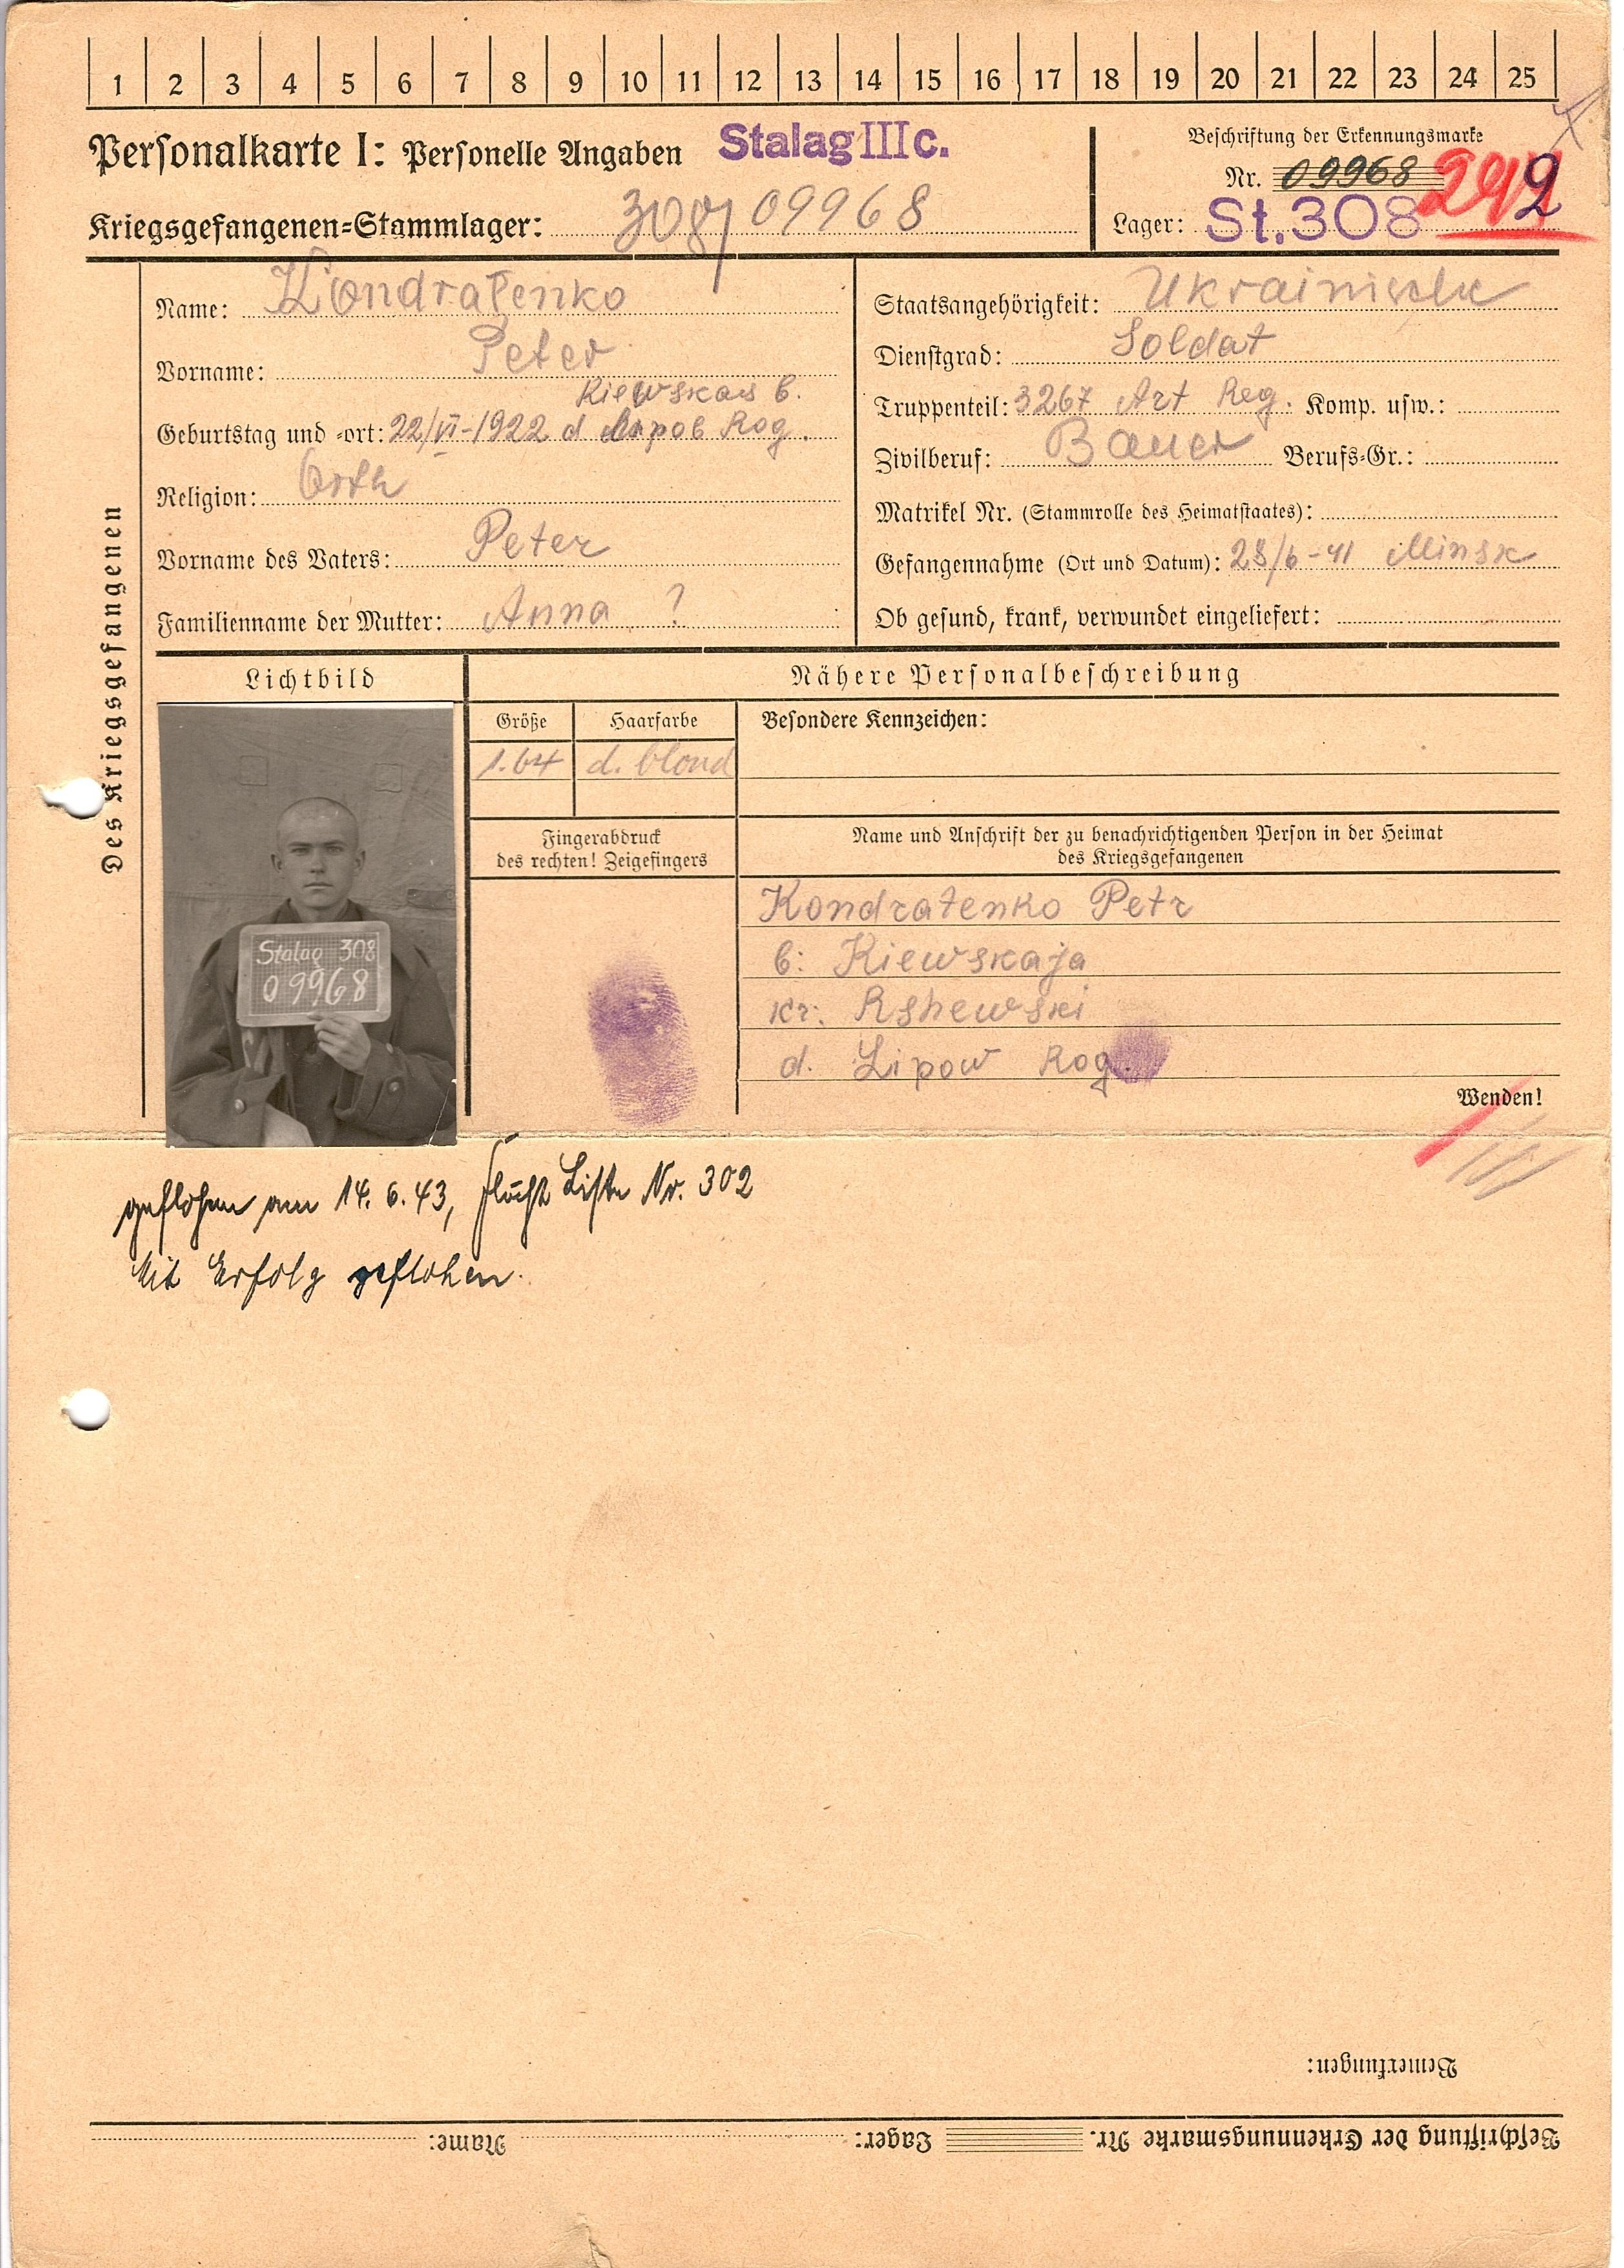 1 2 3 4 5 6 7 8 9 10 11 12 13 14 15 16 17 18 19 20 21 22 23 24 25
Personalkarte I: Personelle Angaben Stalag IIIc.
Kriegsgefangenen=Stammlager: 308/ 09968
Beschriftung der Erkennungsmarke
Nr. 09968
Lager: St. 308
Des Kriegsgefangenen
Name: Kondratenko
Vorname: Peter
Kiewskais b.
Geburtstag und -ort: 22/VI-1922 d Rog.
Religion: Orth
Vorname des Vaters: Peter
Familienname der Mutter: Anna ?
Staatsangehörigkeit: Ukrainische
Dienstgrad: Soldat
Truppenteil: 3267 Art Reg. Komp. usw.:
Zivilberuf: Bauer Berufs-Gr.:
Matrikel Nr. (Stammrolle des Heimatstaates):
Gefangennahme (Ort und Datum): 28/6-41 Minsk
Ob gesund, krank, verwundet eingeliefert:
Lichtbild
Stalag 308
09968
Nähere Personalbeschreibung
Größe Haarfarbe Besondere Kennzeichen:
1.64 d. blond
Fingerabdruck
des rechten! Zeigefingers
Name und Anschrift der zu benachrichtigenden Person in der Heimat
des Kriegsgefangenen
Kondratenko Petr
b: Kiewskaja
kr: Rshewski
d. Lipow Rog.
Wenden!
geflohen am 14. 6. 43, Flucht Liste Nr. 302
Mit Erfolg geflohen.
Bemerkungen:
Beschriftung der Erkennungsmarke Nr. Lager: Name: